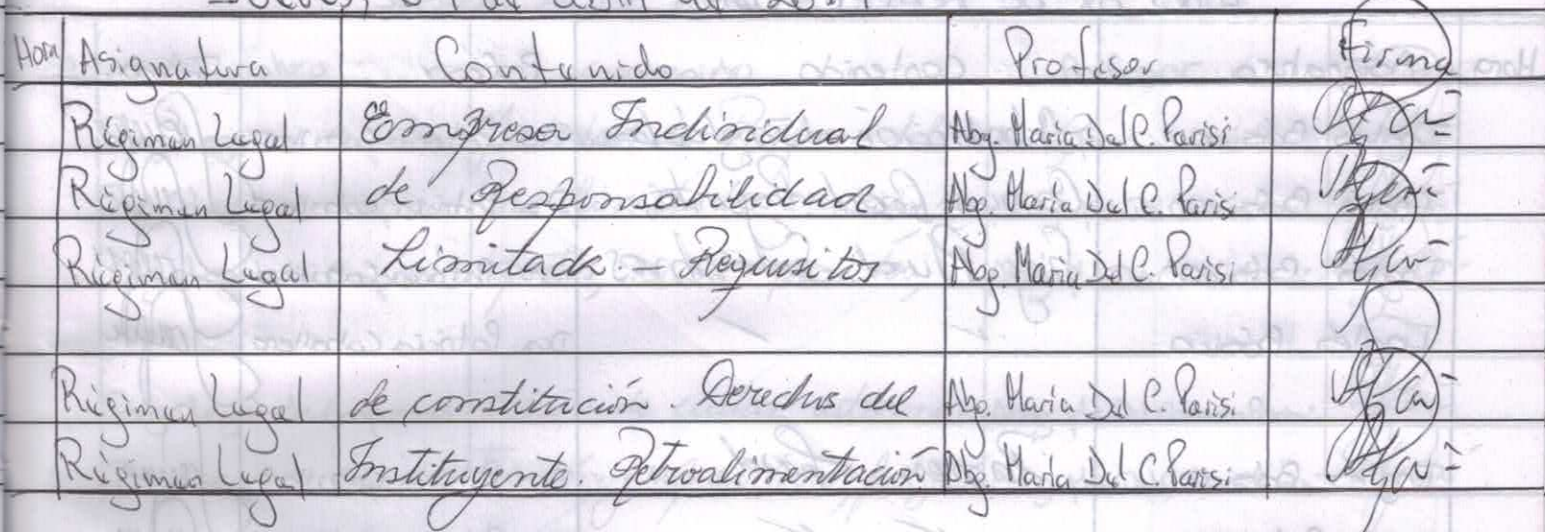 Hora Asignatura Contenido Profesor Firma
Régimen Legal Empresa Individual Abg. Maria Del C. Parisi
Régimen Legal de Responsabilidad Abg. Maria Del C. Parisi
Régimen Legal Limitada. – Requisitos Abg. Maria Del C. Parisi
Régimen Legal de constitución. Derechos del Abg. Maria Del C. Parisi
Régimen Legal Instituyente. Retroalimentación Abg. Maria Del C. Parisi